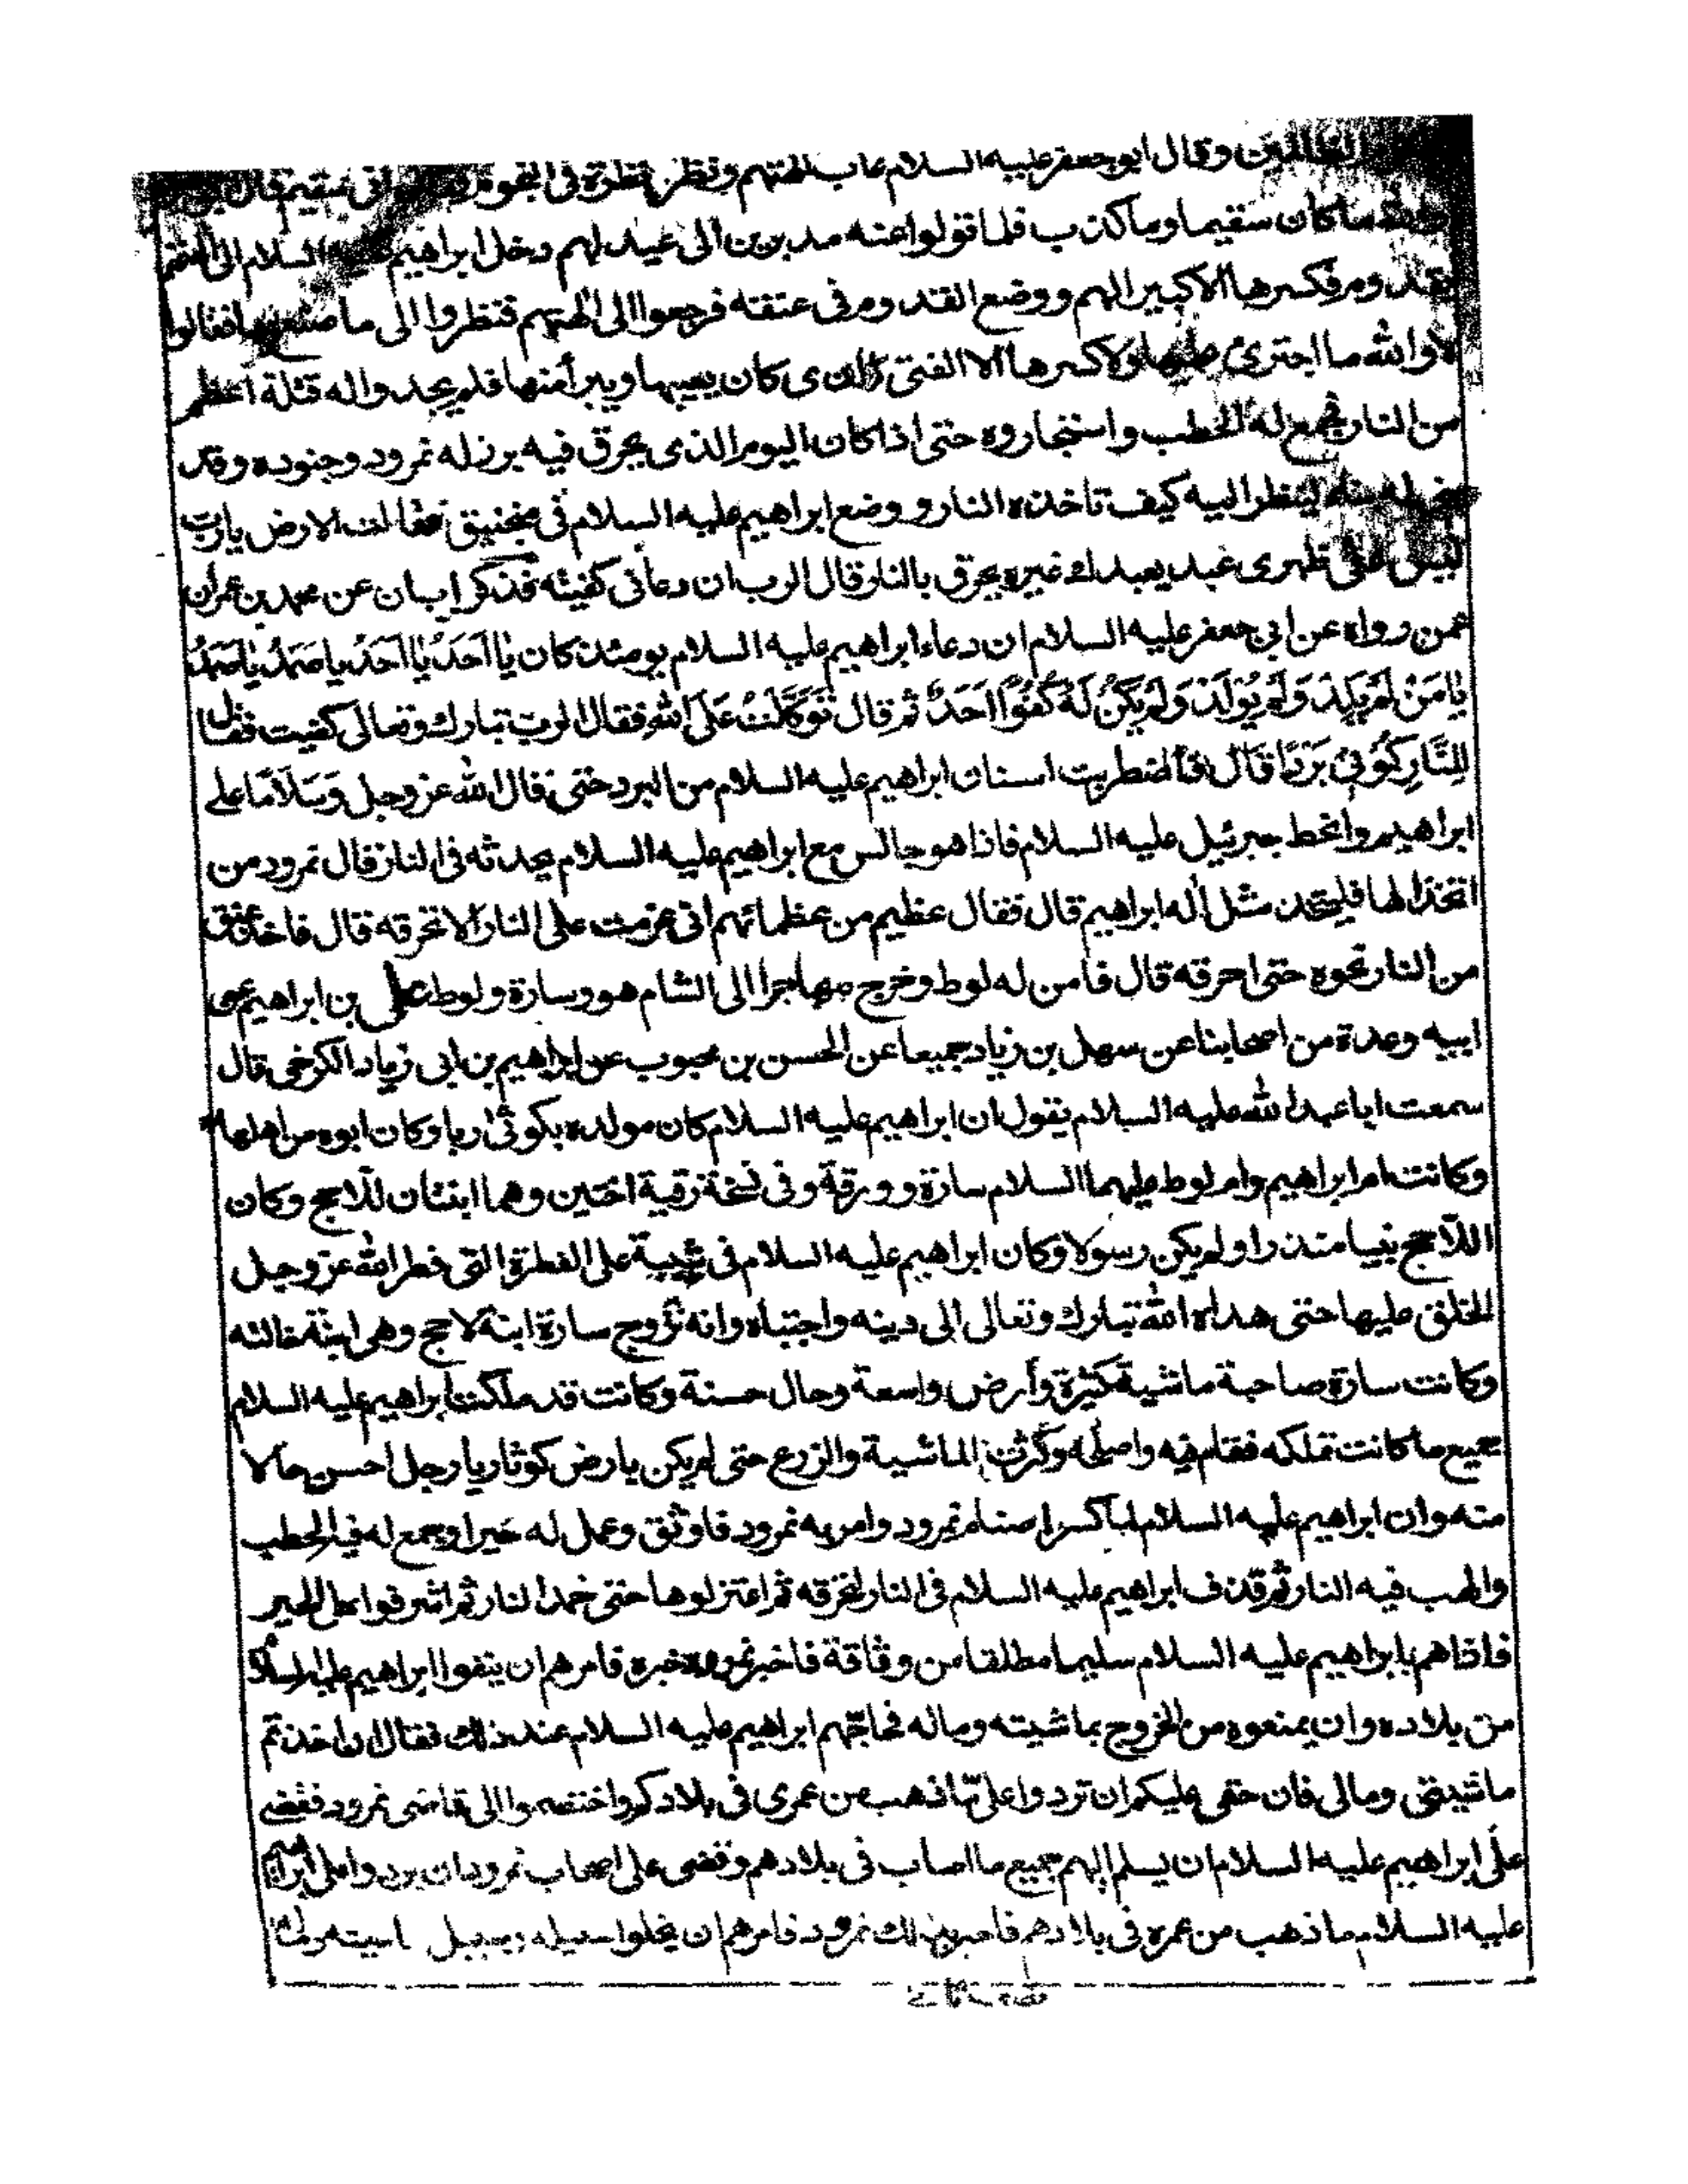 الظالمين وقال ابوجعفر عليه السلام عاب الهتهم ونظر نظرة فى النجوم فقال انى سقيم قال ابو جعفر
ما كان سقيما وما كذب فلما تولوا عنه مدبرين الى عيد لهم دخل ابراهيم عليه السلام الى الهتهم
بقدوم فكسرها الا كبيرا لهم ووضع القدوم فى عنقه فرجعوا الى الهتهم فنظروا الى ما صنع بها فقالوا
لا والله ما اجترئ عليها ولا كسرها الا الفتى الذى كان يعيبها ويبرأ منها فلم يجدوا له قتلة أعظم
من النار فجمع له الحطب واستجاروه حتى اذا كان اليوم الذى يحرق فيه برز له نمرود وجنوده وقد
بنى له بناء لينظر اليه كيف تاخذه النار ووضع ابراهيم عليه السلام فى منجنيق فقالت الارض يارب
ليس على ظهرى عبد يعبدك غيره يحرق بالنار قال الرب ان دعانى كفيته فذكر ابان عن محمد بن مران
عمن رواه عن ابى جعفر عليه السلام ان دعاء ابراهيم عليه السلام يومئذ كان يا أحد يا أحد يا صمد يا صمد
يا من لم يلد ولم يولد ولم يكن له كفوا احد ثم قال توكلت على الله فقال الرب تبارك وتعالى كفيت فقال
للنار كونى بردا قال فاضطربت اسنان ابراهيم عليه السلام من البرد حتى قال الله عز وجل وسلاما على
ابراهيم وانحط جبرئيل عليه السلام فاذا هو جالس مع ابراهيم عليه السلام يحدثه فى النار قال نمرود من
اتخذ الها فليتخذ مثل إله ابراهيم قال فقال عظيم من عظمائهم انى عزمت على النار الا تحرقه قال فاخذ عنق
من النار نحوه حتى احرقه قال فآمن له لوط وخرج مهاجرا الى الشام هو وسارة ولوط على بن ابراهيم عن
ابيه وعدة من اصحابنا عن سهل بن زياد جميعا عن الحسن بن محبوب عن ابراهيم بن ابى زياد الكرخى قال
سمعت ابا عبد الله عليه السلام يقول ان ابراهيم عليه السلام كان مولده بكوثى ربا وكان ابوه من اهلها
وكانت ام ابراهيم وام لوط عليهما السلام سارة وورقة وفى نسخة رقية اختين وهما ابنتان للاحج وكان
اللاحج نبيا منذرا ولم يكن رسولا وكان ابراهيم عليه السلام فى شبيبة على الفطرة التى فطر الله عز وجل
الخلق عليها حتى هداه الله تبارك وتعالى الى دينه واجتباه وانه تزوج سارة ابنة لاحج وهى ابنة خالته
وكانت سارة صاحبة ماشية كثيرة وأرض واسعة وحال حسنة وكانت قد ملكت ابراهيم عليه السلام
جميع ما كانت تملكه فقام فيه واصلحه وكثرت الماشية والزرع حتى لم يكن بارض كوثار يا رجل احسن حالا
منه وان ابراهيم عليه السلام لما كسر اصنام نمرود وامر به نمرود فاوثق وعمل له حيرا وجمع له فيه الحطب
والهب فيه النار ثم قذف ابراهيم عليه السلام فى النار لتحرقه ثم اعتزلوها حتى خمدت النار ثم اشرفوا على الحير
فاذا هم بابراهيم عليه السلام سليما مطلقا من وثاقه فاخبر نمرود خبره فامرهم ان ينفوا ابراهيم عليه السلام
من بلاده وان يمنعوه من الخروج بماشيته وماله فحاجهم ابراهيم عليه السلام عند ذلك فقال ان اخذتم
ماشيتى ومالى فان حقى عليكم ان تردوا على ما ذهب من عمرى فى بلادكم واختصموا الى قاضى نمرود فقضى
على ابراهيم عليه السلام ان يسلم اليهم جميع ما اصاب فى بلادهم وقضى على اصحاب نمرود ان يردوا على ابراهيم
عليه السلام ما ذهب من عمره فى بلادهم فاخبر بذلك نمرود فامرهم ان يخلوا سبيله وسبيل